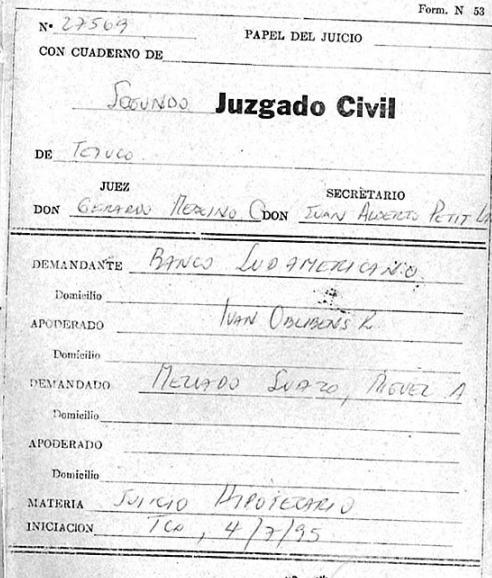 Form. N 53
Nº 27569 PAPEL DEL JUICIO
CON CUADERNO DE
SEGUNDO Juzgado Civil
DE TEMUCO
JUEZ SECRETARIO
DON GERARDO MERINO C DON JUAN ALBERTO PETIT
DEMANDANTE BANCO SUDAMERICANO
Domicilio
APODERADO IVAN R
Domicilio
DEMANDADO SUAZO, MIGUEL A
Domicilio
APODERADO
Domicilio
MATERIA JUICIO HIPOTECARIO
INICIACION TCO, 4/7/95